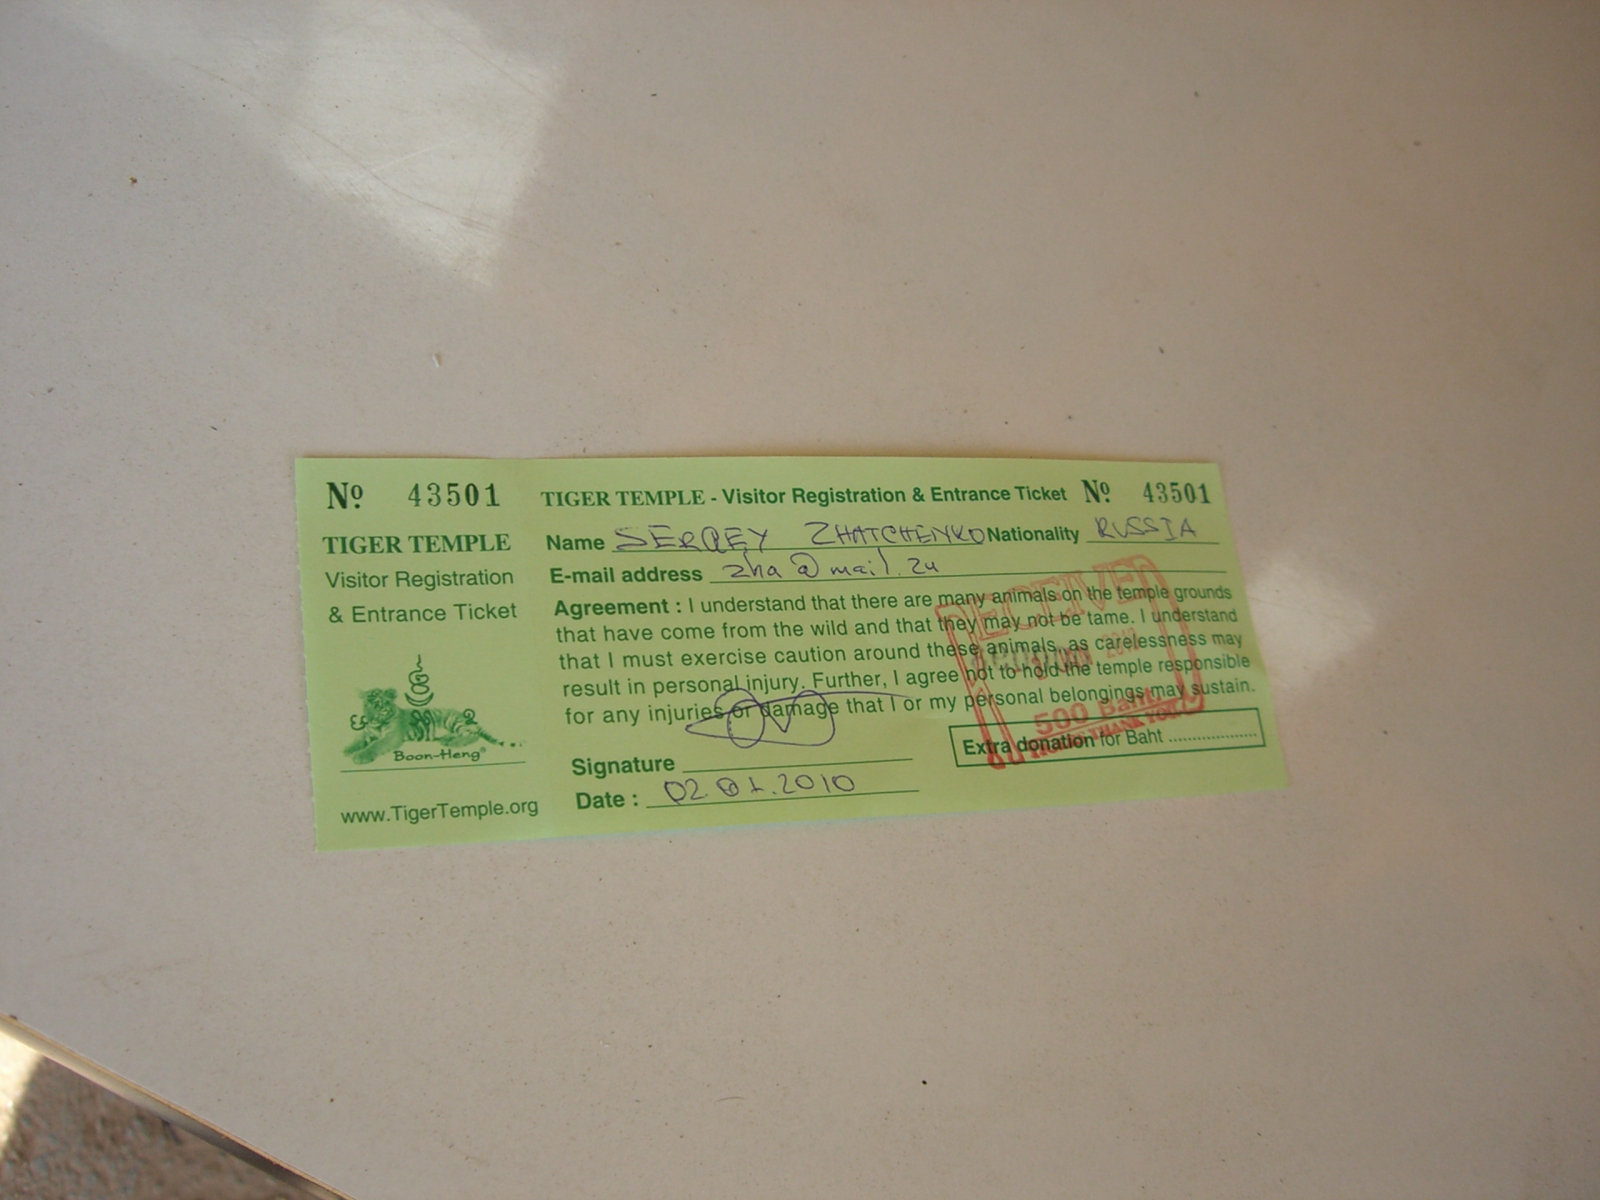 Nº 43501
TIGER TEMPLE
Visitor Registration
& Entrance Ticket
Boon-Heng®
www.TigerTemple.org
TIGER TEMPLE - Visitor Registration & Entrance Ticket Nº 43501
Name SERGEY ZHATCHENKO Nationality RUSSIA
E-mail address zha@mail.ru
Agreement : I understand that there are many animals on the temple grounds
that have come from the wild and that they may not be tame. I understand
that I must exercise caution around these animals, as carelessness may
result in personal injury. Further, I agree not to hold the temple responsible
for any injuries or damage that I or my personal belongings may sustain.
RECEIVED
500 Baht
THANK YOU
Extra donation for Baht ....................
Signature
Date : 02.01.2010